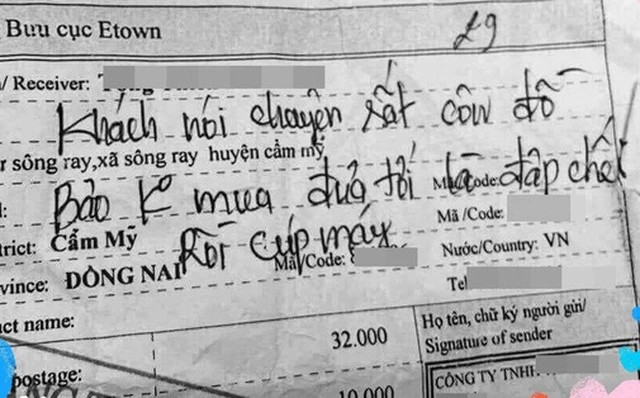 Bưu cục Etown
29
/ Receiver:
Khách nói chuyện rất côn đồ
r sông ray,xã sông ray huyện cẩm mỹ
Bảo K° mua đưa tới là đập chết
Mã/Code:
Mã /Code:
trict: Cẩm Mỹ
Rồi cúp máy
Mã/Code:
Nước/Country: VN
vince: ĐỒNG NAI
Tel
act name:
32.000
Họ tên, chữ ký người gửi/
Signature of sender
postage:
10.000
CÔNG TY TNHH